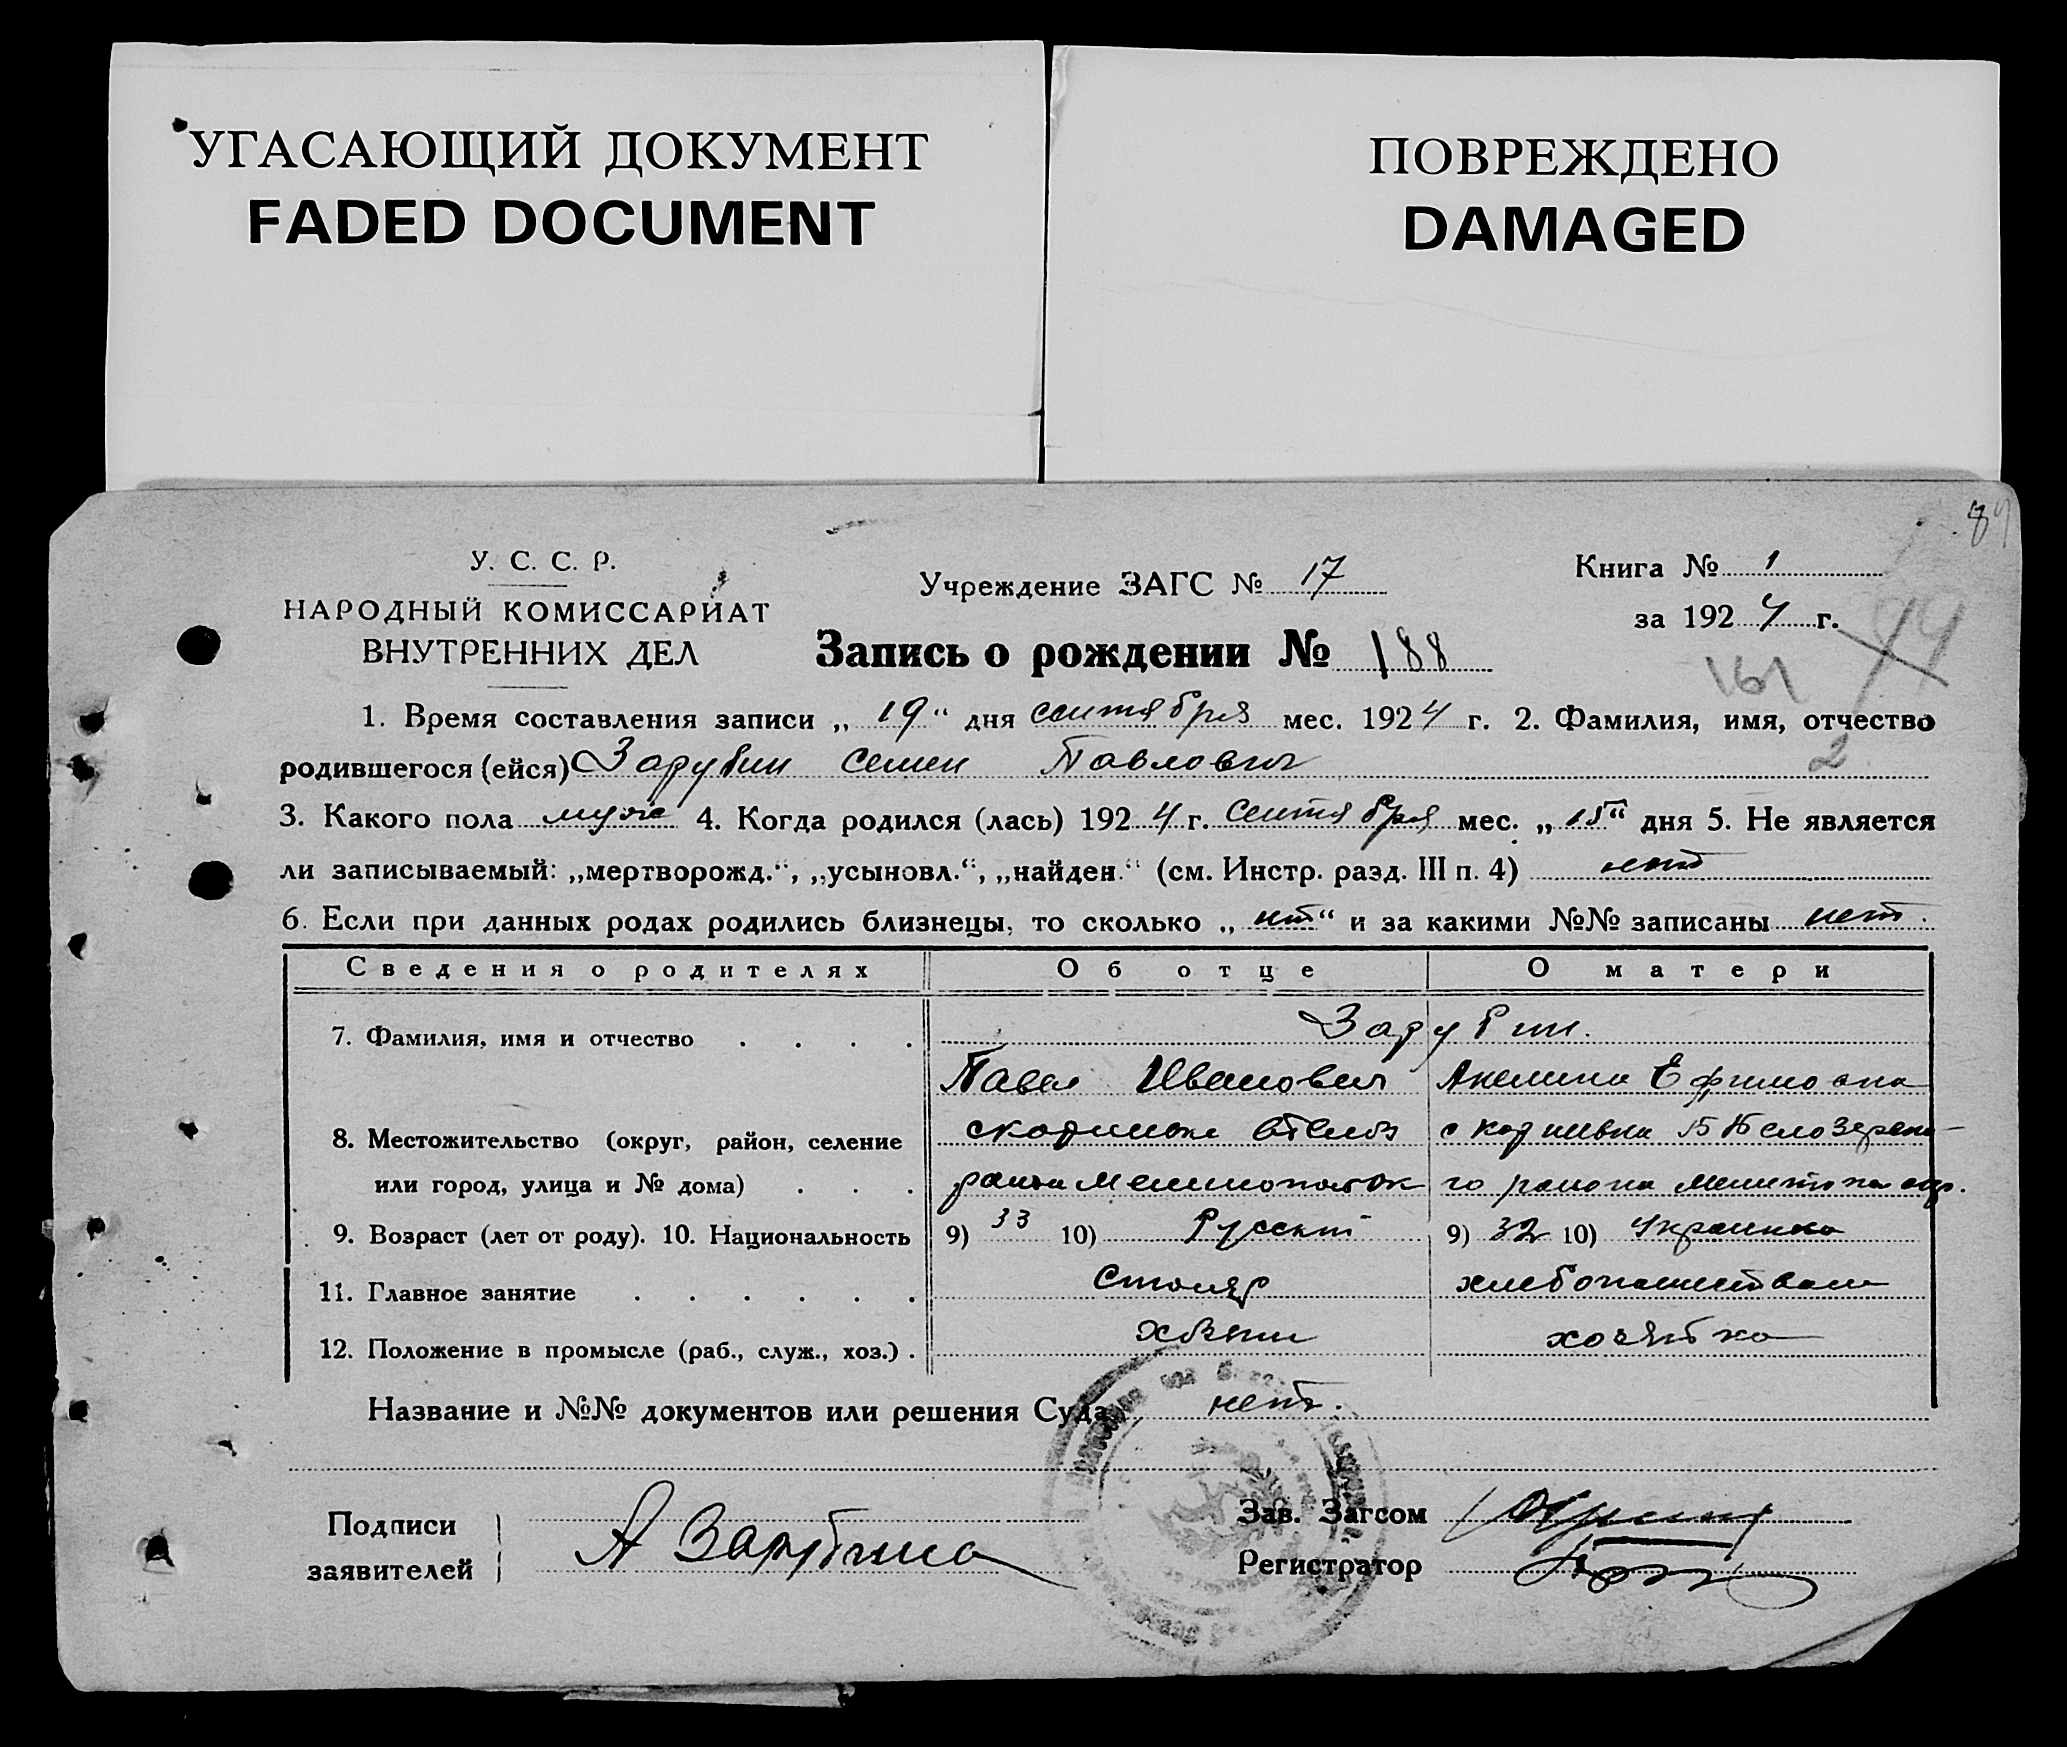 УГАСАЮЩИЙ ДОКУМЕНТ
FADED DOCUMENT
ПОВРЕЖДЕНО
DAMAGED
У. С. С. Р.
НАРОДНЫЙ КОМИССАРИАТ
ВНУТРЕННИХ ДЕЛ
Учреждение ЗАГС № 17
Книга № 1
за 1924 г.
Запись о рождении № 188
161
1. Время составления записи „19“ дня сентября мес. 1924 г. 2. Фамилия, имя, отчество
родившегося (ейся) Зарубин Семен Павлович 2
3. Какого пола муж 4. Когда родился (лась) 1924 г. Сентября мес. „15“ дня 5. Не является
ли записываемый: „мертворожд.“, „усыновл.“, „найден.“ (см. Инстр. разд. III п. 4) нет
6. Если при данных родах родились близнецы, то сколько „нт“ и за какими №№ записаны нет.
Сведения о родителях Об отце О матери
7. Фамилия, имя и отчество Зарубин.
Павел Иванович Акелина Ефимовна
8. Местожительство (округ, район, селение
или город, улица и № дома) района го района
9. Возраст (лет от роду). 10. Национальность 9) 33 10) Русский 9) 32 10) Украинка
11. Главное занятие Столяр
12. Положение в промысле (раб., служ., хоз.) . хозяйка
Название и №№ документов или решения Суда нет.
Подписи
заявителей
А Зарубина
Зав. Загсом
Регистратор